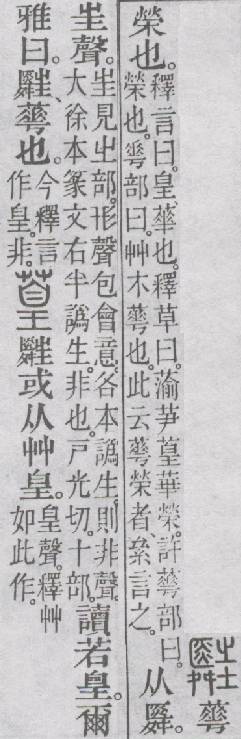 蕐
榮也。釋言曰。皇、華也。釋草曰。蕍芛葟華榮。許蕐部曰。榮也。𠌶部曰。艸木蕐也。此云蕐榮者、絫言之。从䑞。
㞷聲。㞷見㞢部。形聲包會意。各本譌生。則非聲。大徐本篆文右半譌生。非也。戶光切。十部。讀若皇。爾
雅曰。、蕐也。今釋言作皇。非。葟 或从艸皇。皇聲。釋艸如此作。